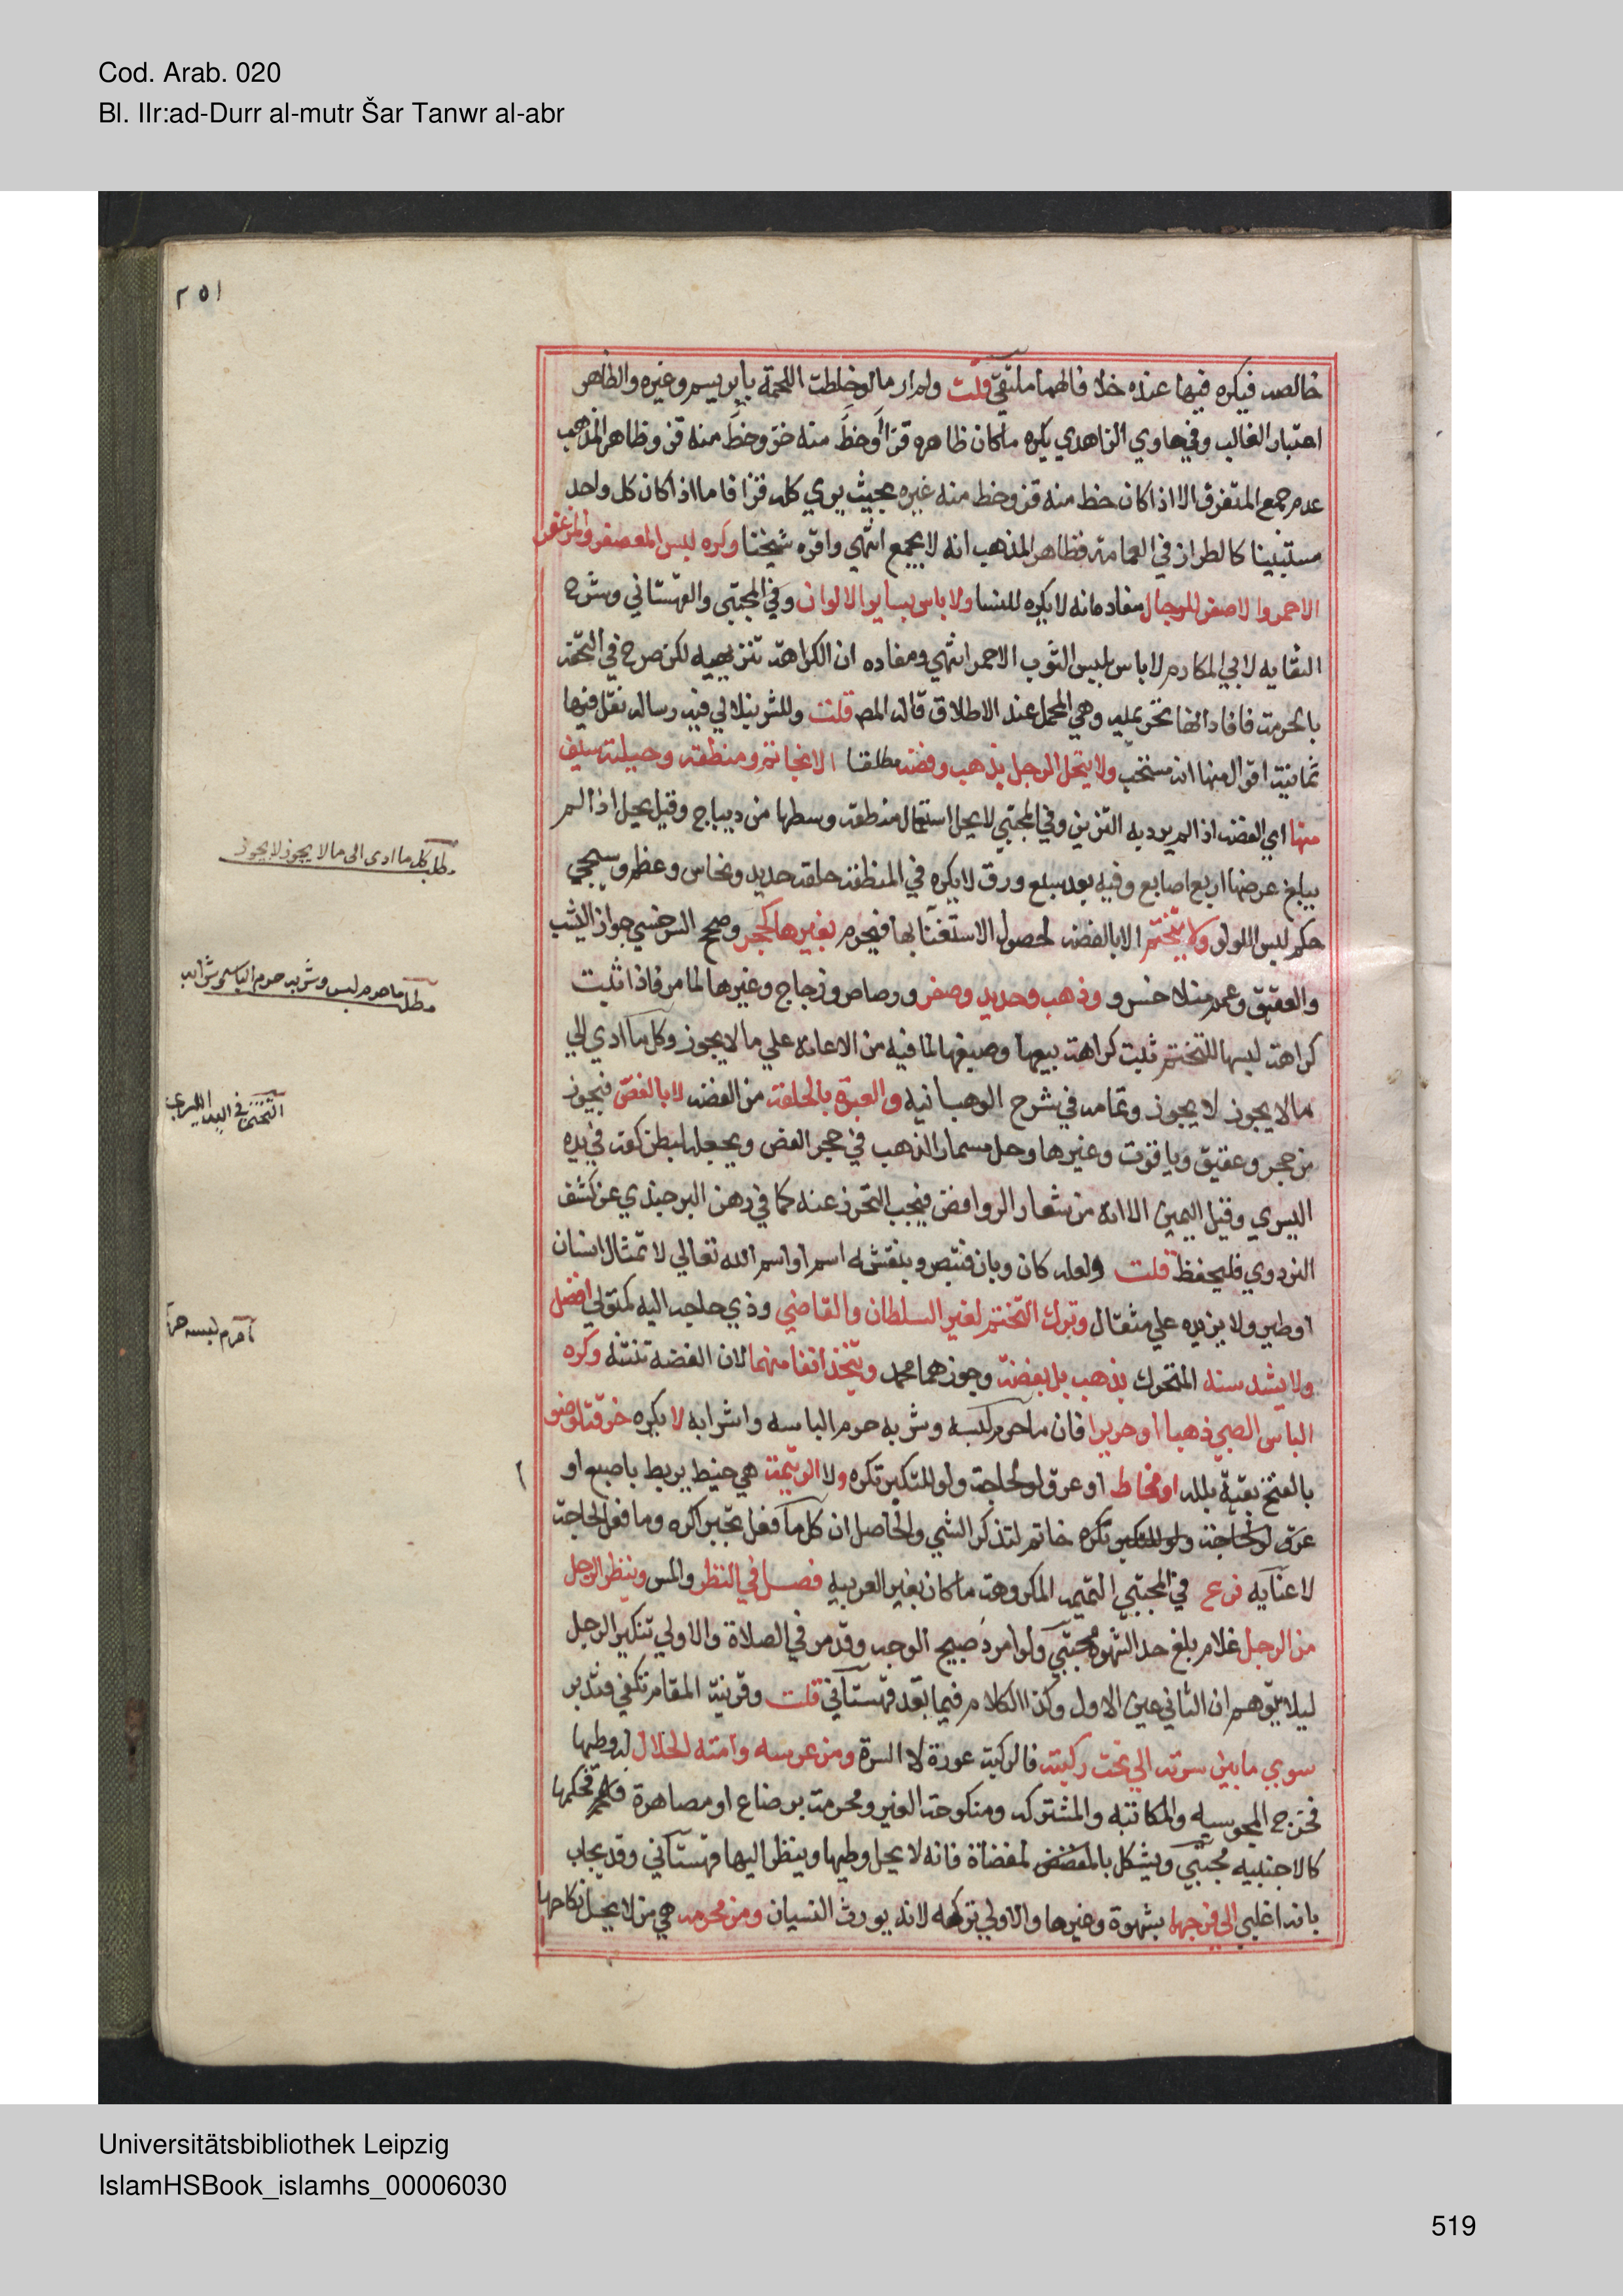 Cod. Arab. 020
Bl. IIr:ad-Durr al-mutr Šar Tanwr al-abr
٢٥١
خالصه فيكره فيها عنده خلافا لهما ملتقي قلت ولم ار ما لو خلطت اللحمة بابريسم وغيره والظاهر
اعتبار الغالب وفي حاوي الزاهدي يكره ما كان ظاهره قزا او خط منه خز وخط منه قز وظاهر المذهب
عدم جمع المتفرق الا اذا كان خط منه قز وخط منه غيره بحيث يري كله قزا فاما اذا كان كل واحد
مستبينا كالطراز في العمامة فظاهر المذهب انه لا يجمع انتهي واقره شيخنا وكره لبس المعصفر والمزعفر
الاحمر والاصفر للرجال مفاده انه لا يكره للنسا ولا باس بساير الالوان وفي المجتبي والقهستاني وشرح
النقايه لابي المكارم لا باس بلبس الثوب الاحمر انتهي ومفاده ان الكراهة تنزيهيه لكن صرح في التحفة
بالحرمة فافاد انها تحريميه وهي المحمل عند الاطلاق قاله المص قلت وللشرنبلالي فيه رساله نقل فيها
ثمانية اقوال منها انه مستحب ولا يتحلي الرجل بذهب وفضة مطلقا الا بخاتم ومنطقة وحيلة سيف
منها اي الفضه اذا لم يرد به التزين وفي المجتبي لا يحل استعمال منطقة وسطها من ديباج وقيل يحل اذا لم
يبلغ عرضها اربع اصابع وفيه بعد سبع ورق لا يكره في المنطقة حلقة حديد ونحاس وعظم وسيجي
حكم لبس اللولو ولا يتختم الا بالفضه لحصول الاستغنا بها فيحرم بغيرها كحجر وصحح السرخسي جواز اليشب
والعقيق وعمم منلا خسرو وذهب وحديد وصفر ورصاص وزجاج وغيرها لما مر فاذا ثبت
كراهة لبسها للتختم ثبت كراهة بيعها وصيغها لما فيه من الاعانه علي ما لا يجوز وكل ما ادي الي
ما لا يجوز لا يجوز وتمامه في شرح الوهبانيه والعبرة بالحلقة من الفضه لا بالفص فيجوز
من حجر وعقيق وياقوت وغيرها وحل مسمار الذهب في حجر الفص ويجعله لبطن كفه في يده
اليسري وقيل اليمين الا انه من شعار الروافض فيجب التحرز عنه كما في رهن البرجندي عن كشف
البزدوي فليحفظ قلت ولعله كان وبان فتبصر وينقش له اسم او اسم الله تعالي لا تمثال انسان
او طير ولا يزيده علي مثقال وترك التختم لغير السلطان والقاضي وذي حاجه اليه كمتولي افضل
ولا يشد سنه المتحرك بذهب بل بفضة وجوزهما محمد ويتخذ انفا منهما لان الفضه تنتنه وكره
الباس الصبي ذهبا او حريرا فان ما حرم لبسه وشربه حرم الباسه واشرابه لا يكره خرقة لوضو
بالفتح بقية بلله او مخاط او عرق لو لحاجة ولو للتكبر تكره ولا الرتيمة هي خيط يربط باصبع او
عرق لو لحاجة ولو للتكبر تكره خاتم لتذكر الشي والحاصل ان كل ما فعل تجبرا كره وما فعل لحاجة
لا عنايه فرع في المجتبي التميمه المكروهة ما كان بغير العربيه فصل في النظر والمس وينظر الرجل
من الرجل غلام بلغ حد الشهوة مجتبي ولو امرد صبيح الوجه وقد مر في الصلاة والاولي تنكير الرجل
ليلا يتوهم ان الثاني عين الاول وكذا الكلام فيما بعد قهستاني قلت وقرينة المقام تكفي فتدبر
سوي ما بين سرته الي تحت ركبته فالركبة عورة لا السرة ومن عرسه وامته الحلال له وطيها
فخرج المجوسيه والمكاتبه والمشتركه ومنكوحة الغير ومحرمة برضاع او مصاهرة فحكمها
كالاجنبيه مجتبي ويشكل بالمفضض لمفضاة فانه لا يحل وطيها وينظر اليها قهستاني وقد يجاب
بانه اغلبي الي فرجها بشهوة وغيرها والاولي تركه لانه يورث النسيان ومن محرمه هي من لا يحل نكاحها
مطلب كل ما ادى الى ما لا يجوز لا يجوز
مطلب ما حرم لبس وشربه حرم الباسه وشرابه
التختم في اليد اليسرى
ما حرم لبسه حرم
Universitätsbibliothek Leipzig
IslamHSBook_islamhs_00006030
519